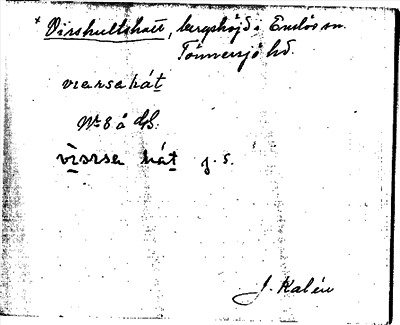 × Virshultshatt, bergshöjd i Enslövs sn.
Tönnersjö hd.
viarsahát
Nr 8 å GS.
viarsa hát g. s.
J. Kalén